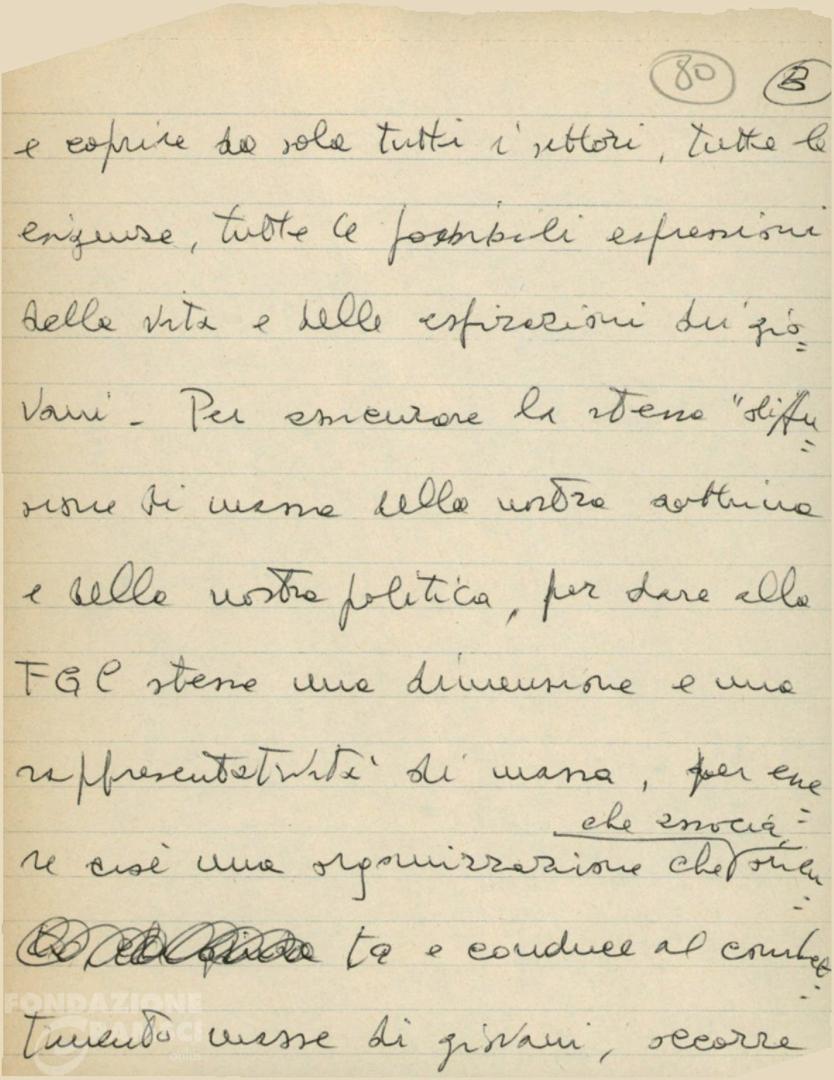 80 B
e coprire da sola tutti i settori, tutte le
esigenze, tutte le possibili espressioni
della vita e delle aspirazioni dei gio=
vani - Per assicurare la stessa "diffu=
sione di massa della nostra dottrina
e della nostra politica, per dare alla
FGC stessa una dimensione e una
rappresentatività di massa, per esse=
che associa,
re cioè una organizzazione che orien=
ta e conduce al combat=
timento masse di giovani, occorre
FONDAZIONE
GRAMSCI
onlus